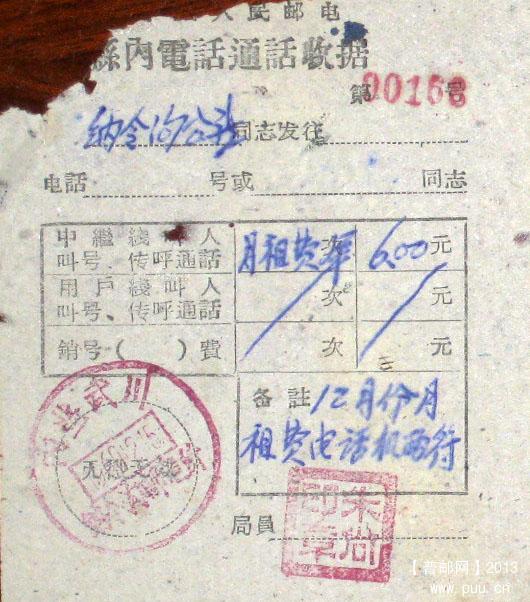 人民邮电
縣內電話通話收据
第00168号
纳令沟公社同志发往
电話 号或 同志
中繼綫叫人 月租费 次 6.00 元
叫号、传呼通話
用戶綫叫人 次 元
叫号、传呼通話
銷号( )費 次 元
备註 12月份月
租费电话机两
武川
局員
朱尚
印章
【普邮网】2013
www.puu.cn